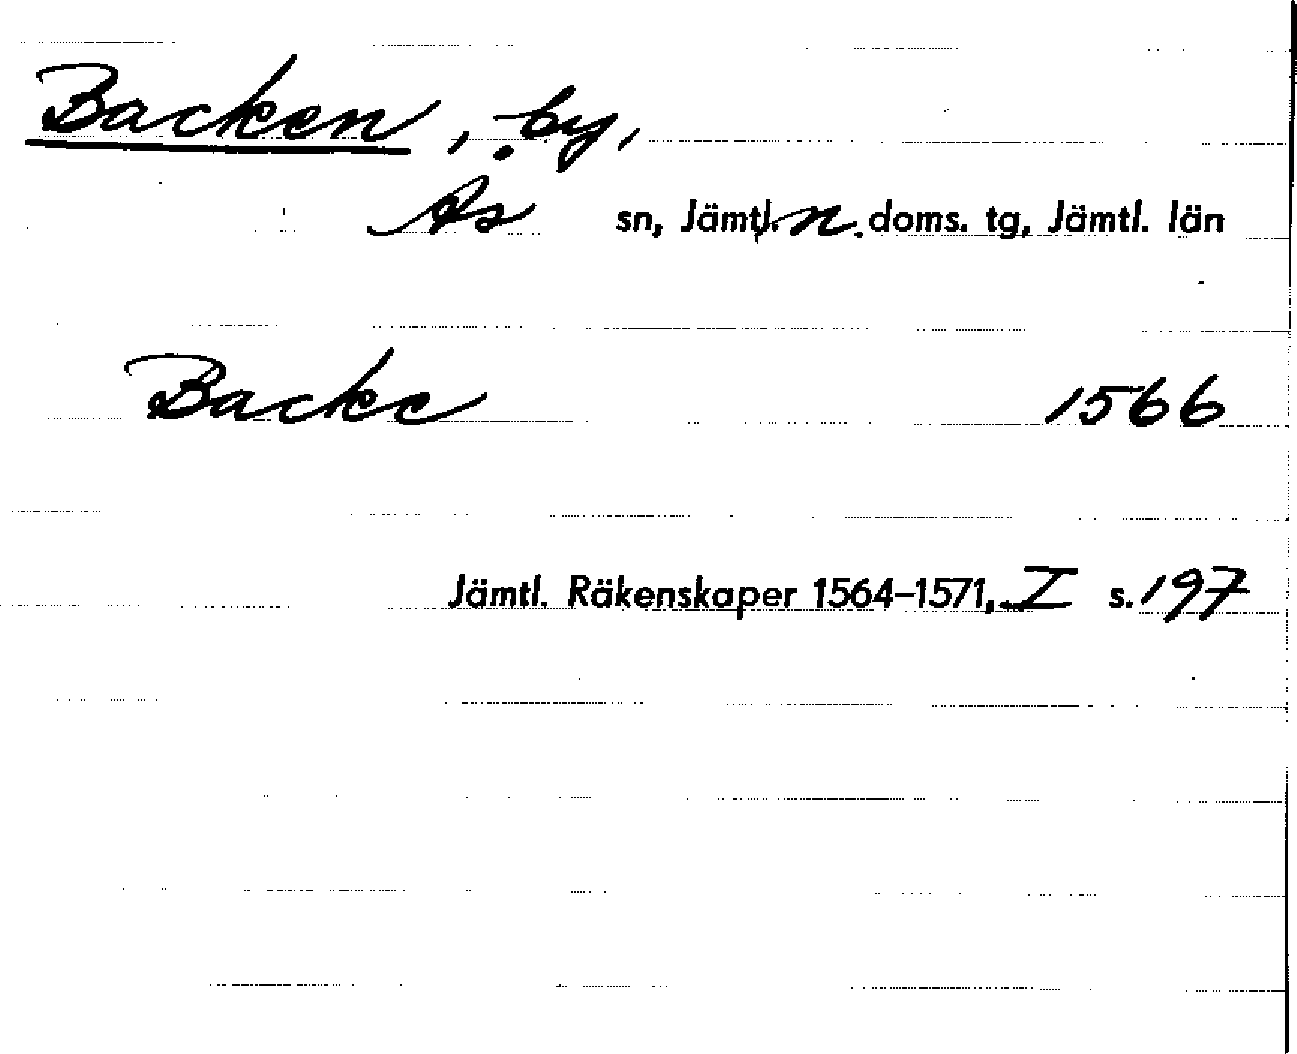 Backen, by,
Ås sn, Jämtl. n. doms. tg, Jämtl. län
Backe 1566
Jämtl. Räkenskaper 1564–1571, I s. 197